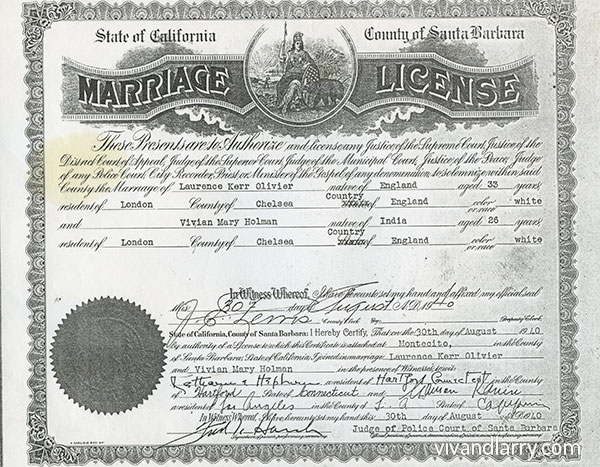 State of California County of Santa Barbara
MARRIAGE LICENSE
These Presents are to Authorize and license any Justice of the Supreme Court, Justice of the
District Court of Appeal, Judge of the Superior Court, Judge of the Municipal Court, Justice of the Peace, Judge
of any Police Court, City Recorder, Priest, or Minister of the Gospel of any denomination to solemnize within said
County the Marriage of Laurence Kerr Olivier native of England aged 33 years,
resident of London County of Chelsea Country of England color or race white
and Vivian Mary Holman native of India aged 26 years,
resident of London County of Chelsea Country of England color or race white
In Witness Whereof, I have hereunto set my hand and affixed my official seal
this 30th day of August A.D. 1940
J E Lewis County Clerk By Deputy Clerk
State of California, County of Santa Barbara: I Hereby Certify, That on the 30th day of August 1940
by authority of a License to which this Certificate is attached at Montecito, in the County
of Santa Barbara, State of California I joined in marriage Laurence Kerr Olivier
and Vivian Mary Holman in the presence of Witnesses, to wit:
Katharine Hepburn a resident of Hartford Connecticut in the County
of Hartford State of Connecticut and Kanin
a resident of Los Angeles in the County of L. A. State of California
In Witness Whereof, I have hereunto set my hand this 30th day of August A.D. 1940
Judge of Police Court of Santa Barbara
vivandlarry.com